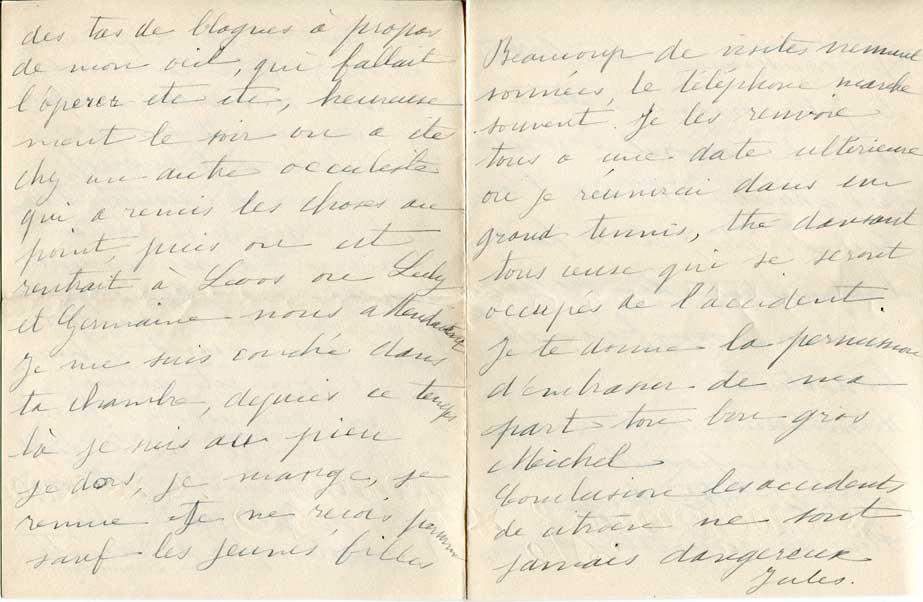 des tas de blagues à propos
de mon œil, qui fallait
l'opérer etc etc, heureuse
ment le soir on a été
chez un autre occuliste
qui a remis les choses au
point, puis on est
rentrait à Loos ou Lely
et Germaine nous attendaient
Je me suis couché dans
ta chambre, depuis ce temps
là je suis au pieu
je dors, je mange, je
remue et je ne reçois personne
sauf les jeunes filles
Beaucoup de visites
sonnées, le téléphone marche
souvent. Je les renvoie
tous a une date ultérieure
ou je réunirai dans un
grand tennis, thé dansant
tous ceuse qui se seront
occupés de l'accident.
Je te donne la permission
d'embrasser de ma
part ton bon gros
Michel
Conclusion les accidents
de citröen ne sont
jamais dangereux
Jules.